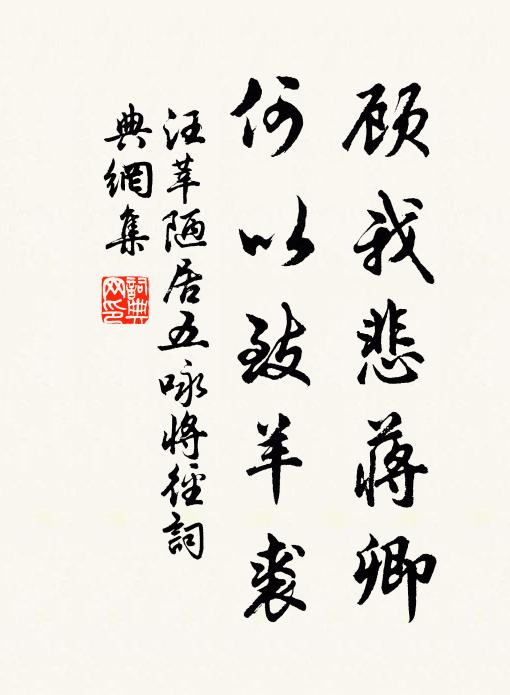 顾我悲蒋卿
何以致羊裘
汪莘陋居五咏将径詞
典網集
詞典
网印